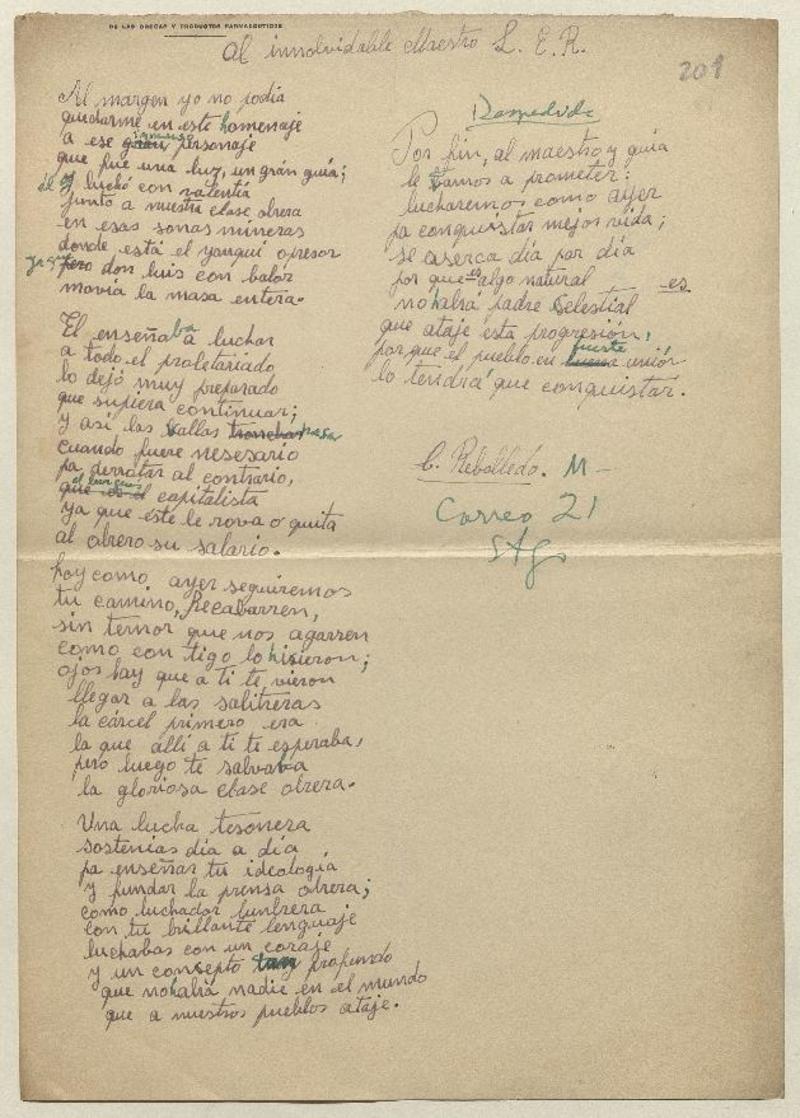 DE LAS DROGAS Y PRODUCTOS FARMACEUTICOS
Al innolvidable Maestro L. E. R.
201
Al margen yo no podía
quedarme en este homenaje
a ese gran inmenso personaje
que fue una luz, un grán guía;
él luchó con valentía
junto a nuestra clase obrera
en esas sonas mineras
donde está el yanqui opresor
pero don luis con balor
movía la masa entera.
El enseñaba a luchar
a todo el proletariado
lo dejó muy preparado
que supiera continuar;
y así las vallas tronchar
cuando fuere nesesario
pa derrotar al contrario,
que es el capitalista
ya que éste le rova o quita
al obrero su salario.
hoy como ayer seguiremos
tu camino, Recabarren,
sin temor que nos agarren
como con tigo lo hisieron;
ojos hay que a ti te vieron
llegar a las salitreras
la cárcel primero era
la que allí a ti te esperaba,
pero luego te salvaba
la gloriosa clase obrera.
Una lucha tesonera
sostenias dia a día
pa enseñar tu ideología
y fundar la prensa obrera;
como luchador lunbrera
con tu brillante lenguaje
luchabas con un coraje
y un consepto tan profundo
que no habia nadie en el mundo
que a nuestros pueblos ataje.
Despedida
Por fin, al maestro y guía
le vamos a prometer:
lucharemos como ayer
pa conquistar mejor vida;
se aserca día por día
por que es algo natural
es
no habrá padre Celestial
que ataje esta progresión,
por que el pueblo en buena fuerte unión
lo tendrá que conquistar.
C. Rebolledo. M-
Correo 21
Stgo